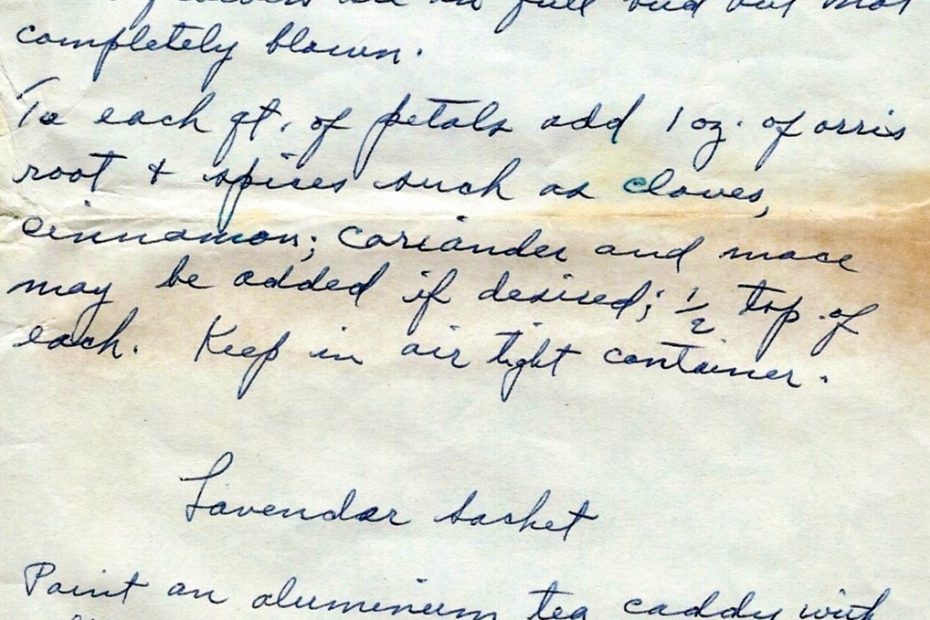 full bud but not
completely blown.
To each qt. of petals add 1 oz. of orris
root + spices such as cloves,
cinnamon; coriander and mace
may be added if desired; 1/2 tsp. of
each. Keep in air tight container.
Lavendar Sachet
Paint an aluminium tea caddy with